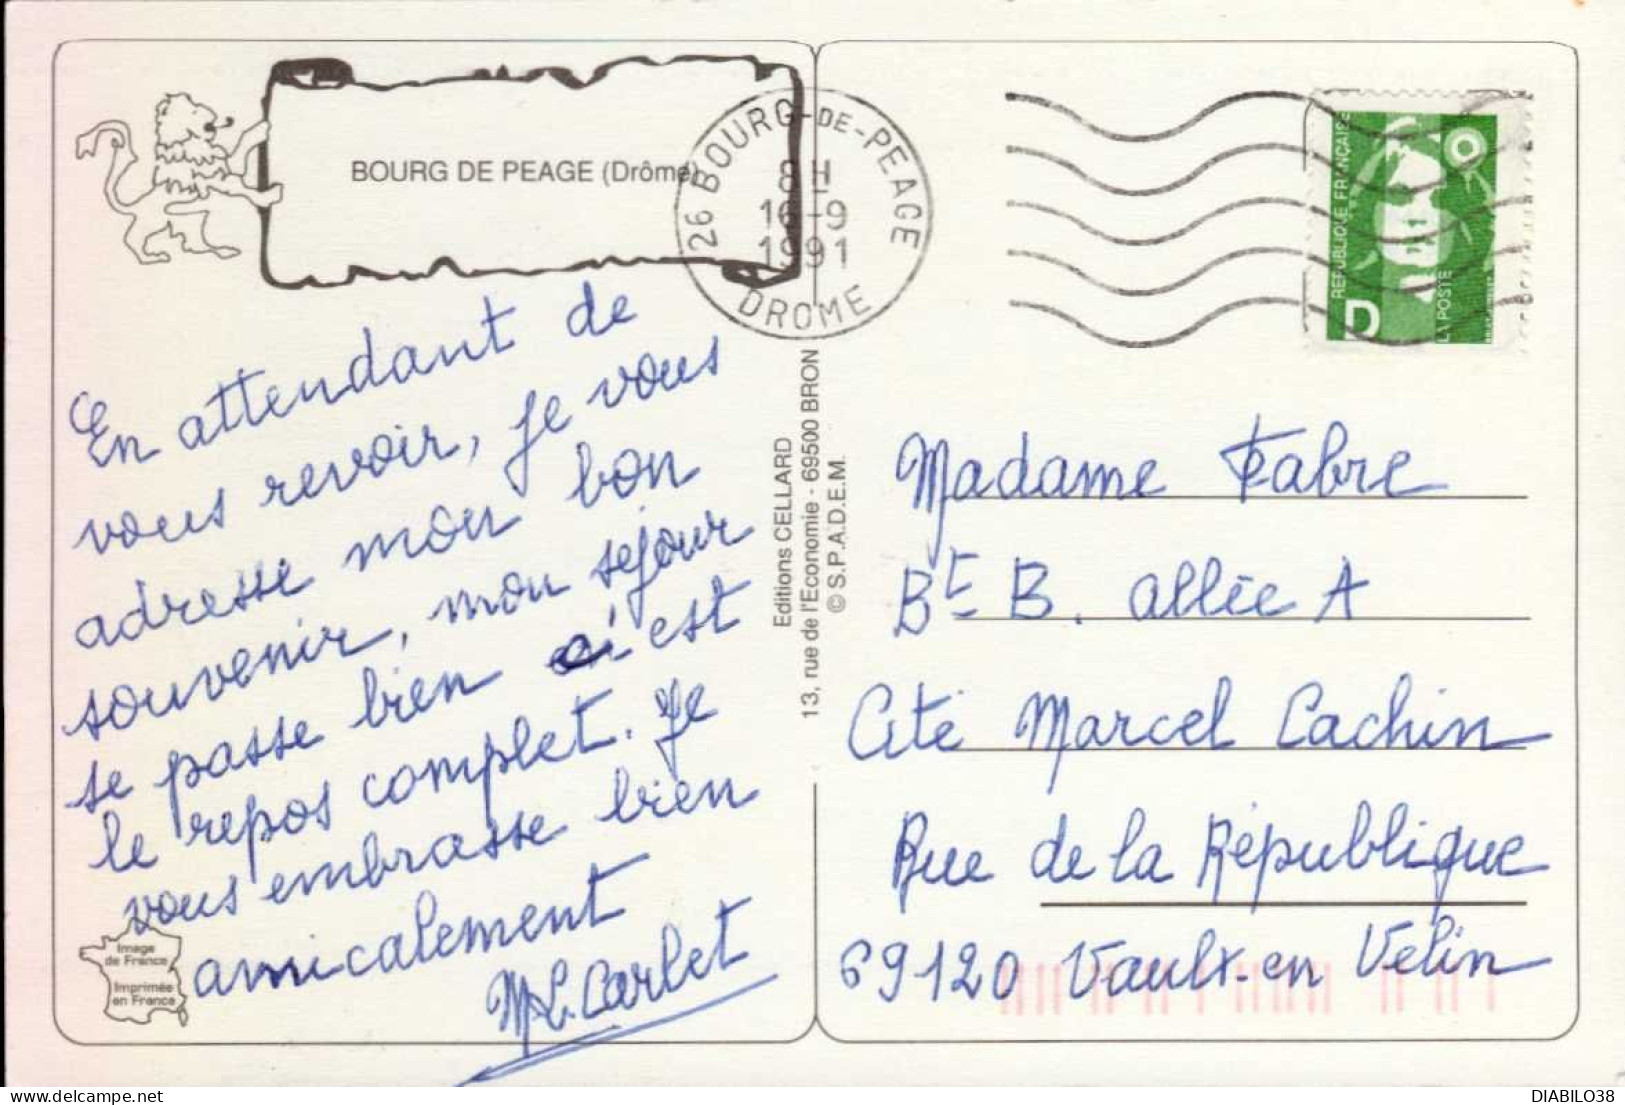 BOURG DE PEAGE (Drôme)
26 BOURG-DE-PEAGE
8H
16-9
1991
DROME
REPUBLIQUE FRANÇAISE
LA POSTE
D
En attendant de
vous revoir, je vous
adresse mon bon
souvenir, mon sejour
se passe bien ci est
le repos complet. Je
vous embrasse bien
amicalement
M.L. Carlet
Image
de France
Imprimée
en France
Editions CELLARD
13, rue de l'Economie - 69500 BRON
© S.P.A.D.E.M.
Madame Fabre
Bt B. allée A
Cité Marcel Cachin
Rue de la République
69120 Vaulx-en Velin
DIABILO38